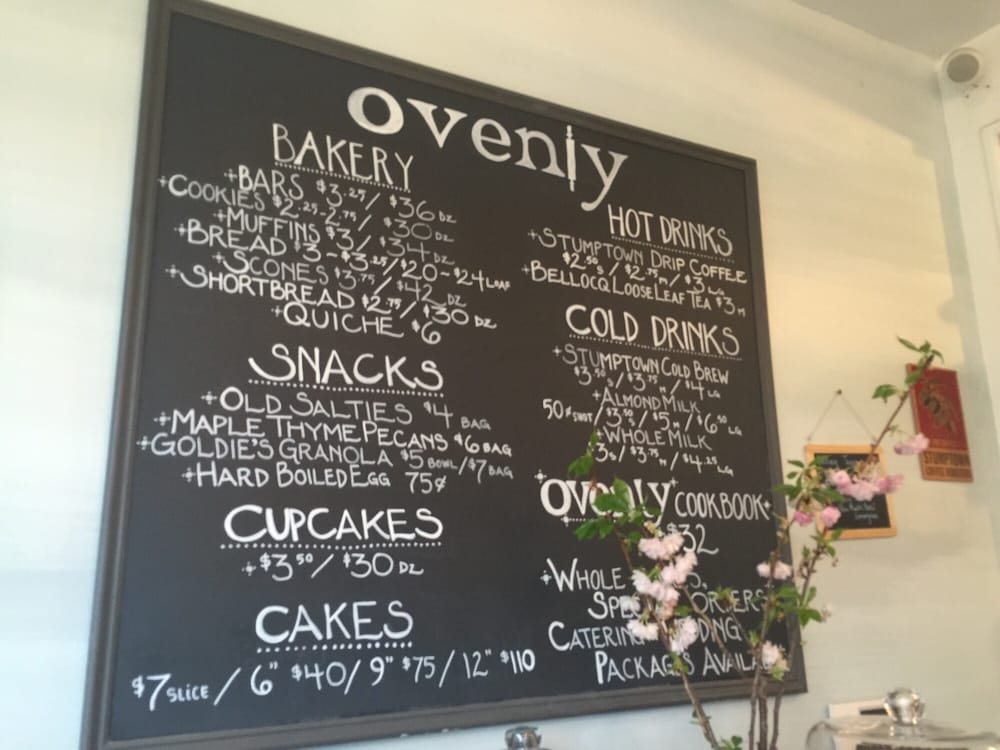 ovenly
BAKERY
+BARS $3.25/$36 DZ
+COOKIES $2.25-2.75/$30 DZ
+MUFFINS $3/$34 DZ
+BREAD $3-$3.25/$20-$24 LOAF
+SCONES $3.75/$42 DZ
+SHORTBREAD $2.75/$30 DZ
+QUICHE $6
SNACKS
+OLD SALTIES $4 BAG
+MAPLE THYME PECANS $6 BAG
+GOLDIE'S GRANOLA $5 BOWL/$7 BAG
+HARD BOILED EGG 75¢
CUPCAKES
+$3.50/$30 DZ
CAKES
$7 SLICE/6" $40/9" $75/12" $110
HOT DRINKS
+STUMPTOWN DRIP COFFEE
$2.50 S/$2.75 M/$3 LG
+BELLOCQ LOOSE LEAF TEA $3 M
COLD DRINKS
+STUMPTOWN COLD BREW
$3.50 S/$3.75 M/$4 LG
+ALMOND MILK
50¢ SHOT/$3.50 S/$5 M/$6.50 LG
+WHOLE MILK
3 S/$3.75 M/$4.25 LG
ovenly COOKBOOK+
$32
+WHOLE
ORDERS
CATERING
PACKAGES
STUMPTOWN